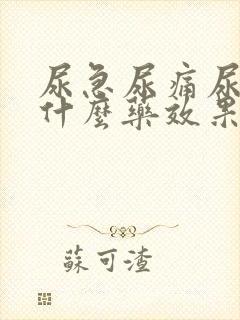 尿急尿痛尿
什麼藥效果
蘇可渣